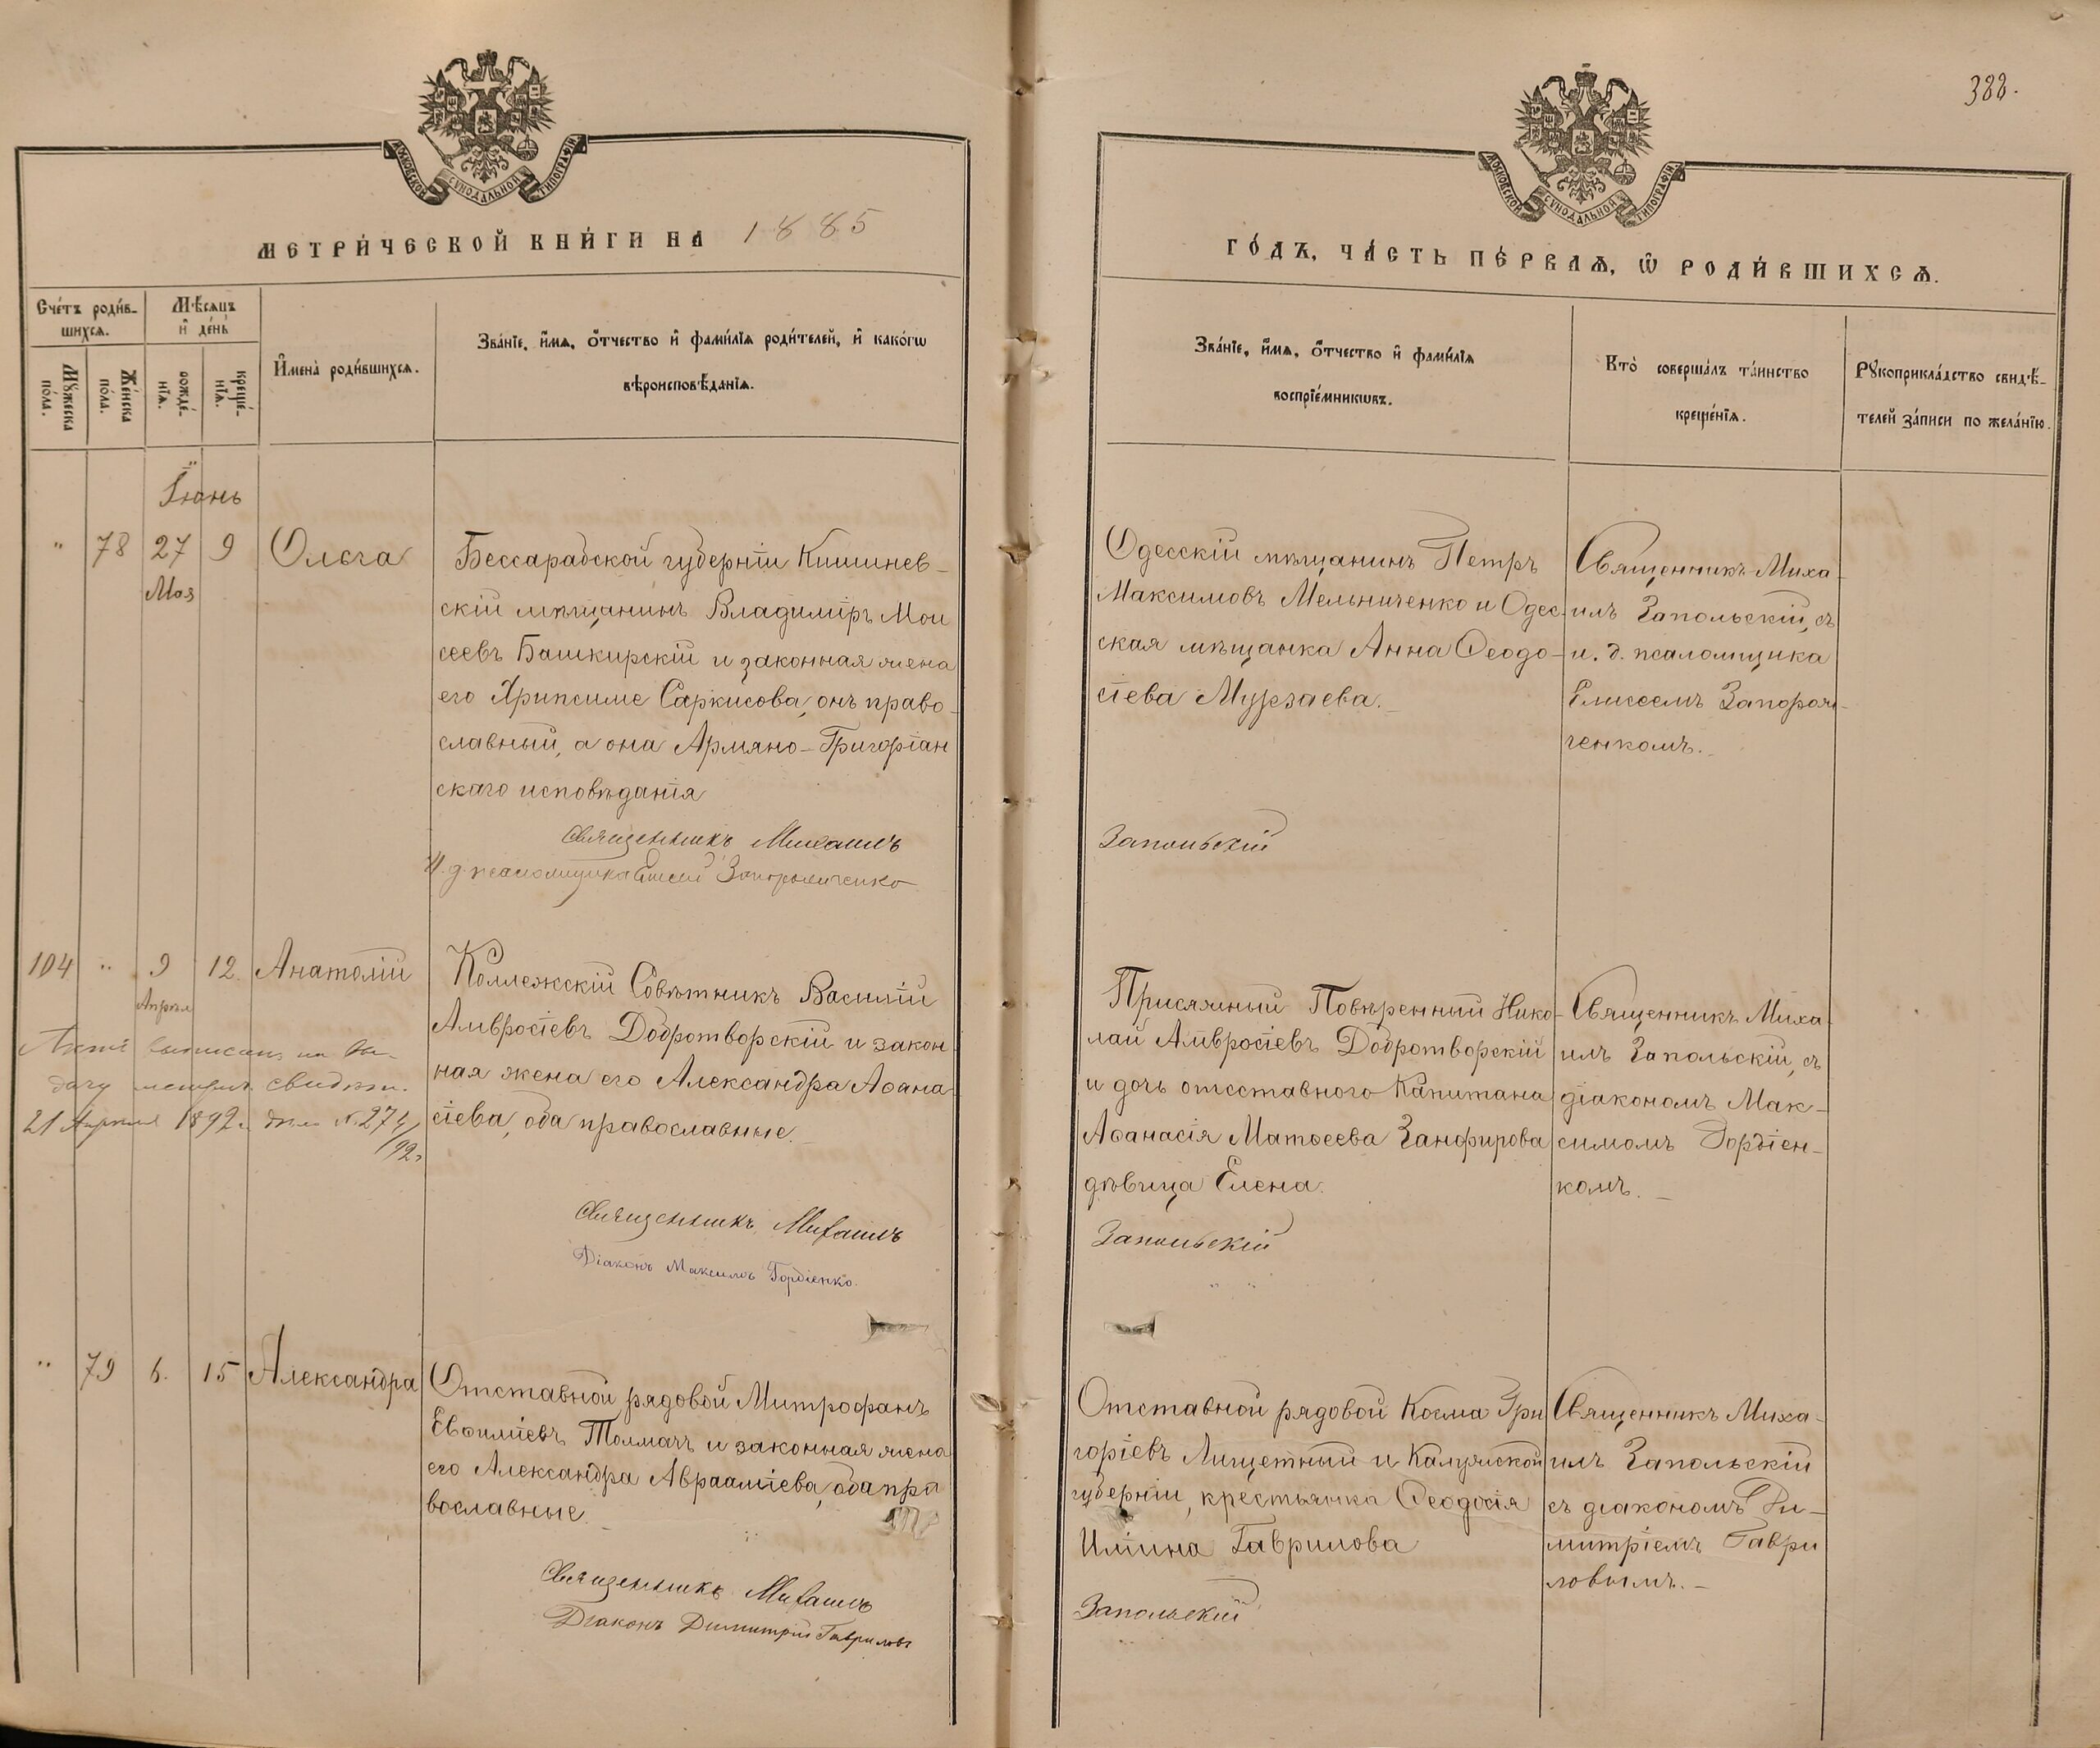 388.
МОСКОВСКОЙ СѴНОДАЛЬНОЙ ТИПОГРАФІИ
МОСКОВСКОЙ СѴНОДАЛЬНОЙ ТИПОГРАФІИ
МЕТРИ́ЧЕСКОЙ КНИ́ГИ НА 1885
ГО́ДЪ, ЧА́СТЬ ПЕ́РВАѦ, Ѡ РОДИ́ВШИХСѦ.
Сче́тъ роди́в-
шихсѧ.
Мꙋжеска
по́ла.
Же́нска
по́ла.
Мѣ́сѧцъ
и҆ де́нь
рожде́-
нїѧ.
креще́-
нїѧ.
И҆мена̀ роди́вшихсѧ.
Зва́нїе, и҆́мѧ, ѻ҆́тчество и҆ фами́лїѧ роди́телей, и҆ како́гѡ
вѣроисповѣ́данїѧ.
Зва́нїе, и҆́мѧ, ѻ҆́тчество и҆ фами́лїѧ
воспрїе́мникѡвъ.
Кто̀ соверша́лъ та́инство
креще́нїѧ.
Рꙋкоприкла́дство свидѣ́-
телей за́писи по жела́нїю.
Іюнь
" 78 27 9 Ольга
Мая
Бессарабской губерніи Кишинев-
скій мѣщанинъ Владиміръ Мои
сеевъ Башкирскій и законная жена
его Хрипсиме Саркисова, онъ право-
славный, а она Армяно-Григоріан
скаго исповѣданія
Священникъ Михаилъ
И. д. псаломщика Елисей Запорожченко
Одесскій мѣщанинъ Петръ
Максимовъ Мельниченко и Одес-
ская мѣщанка Анна Ѳеодо-
сіева Мурзаева.
Запольскій
Священникъ Миха-
илъ Запольскій, съ
и. д. псаломщика
Елисеемъ Запорож-
ченкомъ.
104 " 9 12. Анатолій
Апрѣля
выписанъ на вы-
дачу метрич. свидѣт.
21 Апрѣля 1892 г. дѣло № 274/
/92.
Коллежскій Совѣтникъ Василій
Амвросіевъ Добротворскій и закон
ная жена его Александра Аѳана-
сіева, оба православные.
Священникъ Михаилъ
Діаконъ Максимъ Гордіенко.
Присяжный Повѣренный Нико-
лай Амвросіевъ Добротворскій
и дочь отставного Капитана
Аѳанасія Матѳеева Занфирова
дѣвица Елена.
Запольскій
Священникъ Миха-
илъ Запольскій, съ
діакономъ Мак-
симомъ Гордіен-
комъ.
" 79 6. 15 Александра
Отставной рядовой Митрофанъ
Евѳиміевъ Толмачъ и законная жена
его Александра Авраамiева, оба пра
вославные.
Священникъ Михаилъ
Діаконъ Димитрій Гавриловъ
Отставной рядовой Косма Гри
горіевъ Лищетный и Калужской
губерніи, крестьянка Ѳеодосія
Ильина Гаврилова
Запольскій
Священникъ Миха-
илъ Запольскій
съ діакономъ Ди-
митріемъ Гаври
ловымъ.